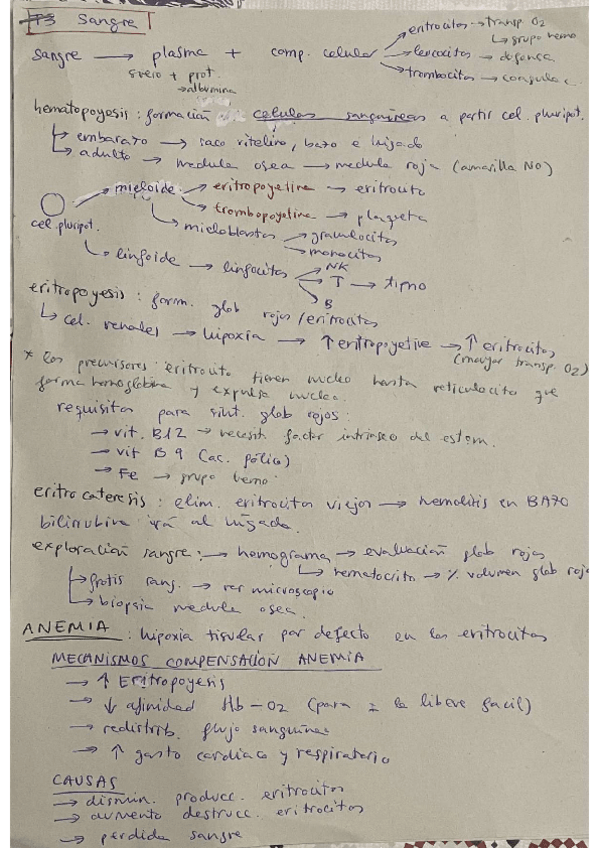 T3 Sangre
Sangre → plasma + comp. celular → eritrocitos → transp O2
↳ grupo hemo
→ leucocitos → defensa
→ trombocitos → coagulac.
suero + prot.
→ albumina
hematopoyesis : formación celulas sanguineas a partir cel. pluripot.
↳ embarazo → saco vitelino, bazo e higado
↳ adulto → medula osea → medula roja (amarilla NO)
cel. pluripot. → mieloide → eritropoyetina → eritrocito
→ trombopoyetina → plaqueta
↳ mieloblastos → granulocitos
→ monocitos
↳ linfoide → linfocitos → NK
→ T → timo
→ B
eritropoyesis : form. glob rojos / eritrocitos
↳ cel. renales → hipoxia → ↑ eritropoyetina → ↑ eritrocitos
(mayor transp. O2)
* los precursores eritrocito tienen nucleo hasta reticulocito que
forma hemoglobina y expulsa nucleo.
requisitos para sint. glob rojos :
→ vit. B12 → necesita factor intrinseco del estom.
→ vit B 9 (ac. fólico)
→ Fe → grupo hemo
eritrocateresis : elim. eritrocitos viejos → hemolisis en BAZO
bilirrubina irá al hígado.
exploración sangre : → hemograma → evaluación glob rojos
↳ hematocrito → % volumen glob rojo
↳ frotis sang. → ver microscopio
↳ biopsia medula osea
ANEMIA : hipoxia tisular por defecto en los eritrocitos
MECANISMOS COMPENSACIÓN ANEMIA
→ ↑ Eritropoyesis
→ ↓ afinidad Hb-O2 (para = la libere facil)
→ redistrib. flujo sanguineo
→ ↑ gasto cardiaco y respiratorio
CAUSAS
→ dismin. producc. eritrocitos
→ aumento destrucc. eritrocitos
→ pérdida sangre